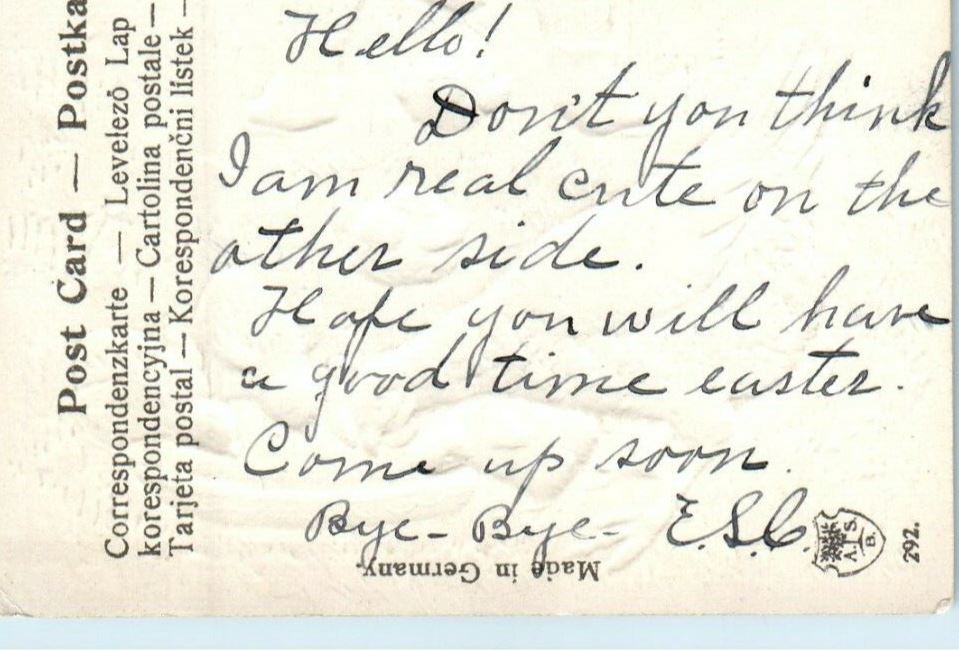 Hello!
Don't you think
I am real cute on the
other side.
Hope you will have
a good time easter.
Come up soon.
Bye-Bye- E.S.C.
Post Card — Postka
Correspondenzkarte — Levelező Lap
korespondencyjna — Cartolina postale —
Tarjeta postal — Korespondenční lístek —
Made in Germany.
A.J.S.
B.
292.